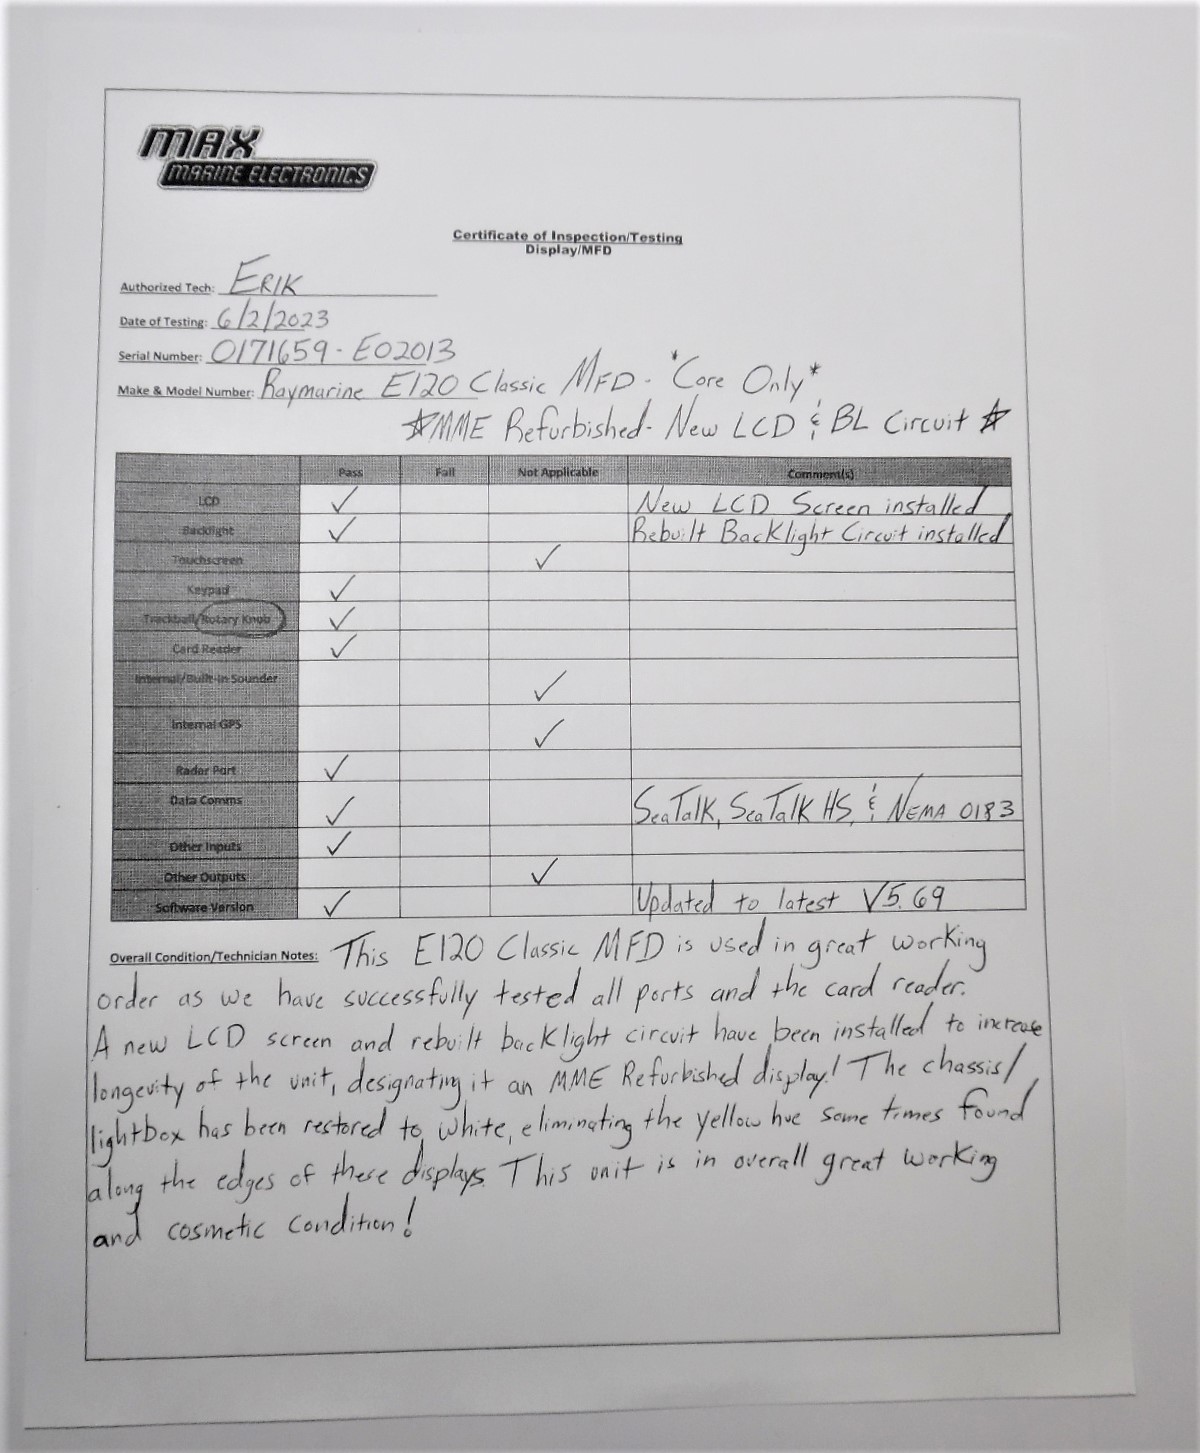 MAX
MARINE ELECTRONICS
Certificate of Inspection/Testing
Display/MFD
Authorized Tech: ERIK
Date of Testing: 6/2/2023
Serial Number: 0171659-E02013
Make & Model Number: Raymarine E120 Classic MFD - *Core Only*
☆MME Refurbished- New LCD & BL Circuit ☆
Pass Fail Not Applicable Comment(s)
LCD ✓ New LCD Screen installed
Backlight ✓ Rebuilt Backlight Circuit installed
Touchscreen ✓
Keypad ✓
Trackball/Rotary Knob ✓
Card Reader ✓
Internal/Built-in Sounder ✓
Internal GPS ✓
Radar Port ✓
Data Comms ✓ SeaTalk, SeaTalk HS, & NEMA 0183
Other Inputs ✓
Other Outputs ✓
Software Version ✓ Updated to latest V5.69
Overall Condition/Technician Notes: This E120 Classic MFD is used in great working
order as we have successfully tested all ports and the card reader.
A new LCD screen and rebuilt backlight circuit have been installed to increase
longevity of the unit, designating it an MME Refurbished display! The chassis/
lightbox has been restored to white, eliminating the yellow hue some times found
along the edges of these displays. This unit is in overall great working
and cosmetic condition!